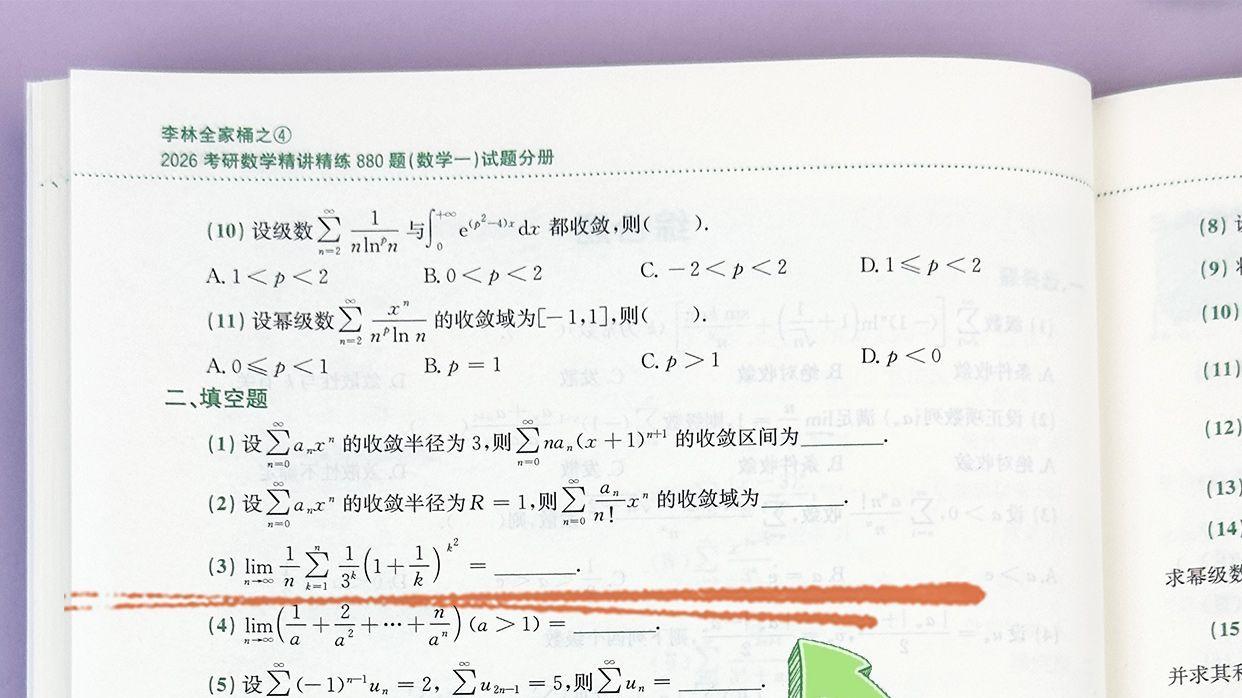 李林全家桶之④
2026 考研数学精讲精练 880 题(数学一)试题分册
(10) 设级数 ∑_{n=2}^{∞} 1/(n ln^p n) 与 ∫_0^{+∞} e^{(p^2-4)x} dx 都收敛,则(  ).
A. 1 < p < 2 B. 0 < p < 2 C. -2 < p < 2 D. 1 ⩽ p < 2
(11) 设幂级数 ∑_{n=2}^{∞} x^n/(n^p ln n) 的收敛域为[-1,1],则(  ).
A. 0 ⩽ p < 1 B. p = 1 C. p > 1 D. p < 0
二、填空题
(1) 设 ∑_{n=0}^{∞} a_n x^n 的收敛半径为 3,则 ∑_{n=0}^{∞} na_n(x+1)^{n+1} 的收敛区间为________.
(2) 设 ∑_{n=0}^{∞} a_n x^n 的收敛半径为 R = 1,则 ∑_{n=0}^{∞} a_n/n! x^n 的收敛域为________.
(3) lim_{n→∞} 1/n ∑_{k=1}^{n} 1/3^k (1+1/k)^{k^2} = ________.
(4) lim_{n→∞} (1/a + 2/a^2 + ⋯ + n/a^n)(a > 1) = ________.
(5) 设 ∑^{∞} (-1)^{n-1} u_n = 2, ∑^{∞} u_{2n-1} = 5,则 ∑^{∞} u_n = ________.
(8)
(9)
(10)
(11)
(12)
(13)
(14
求幂级数
(15
并求其和